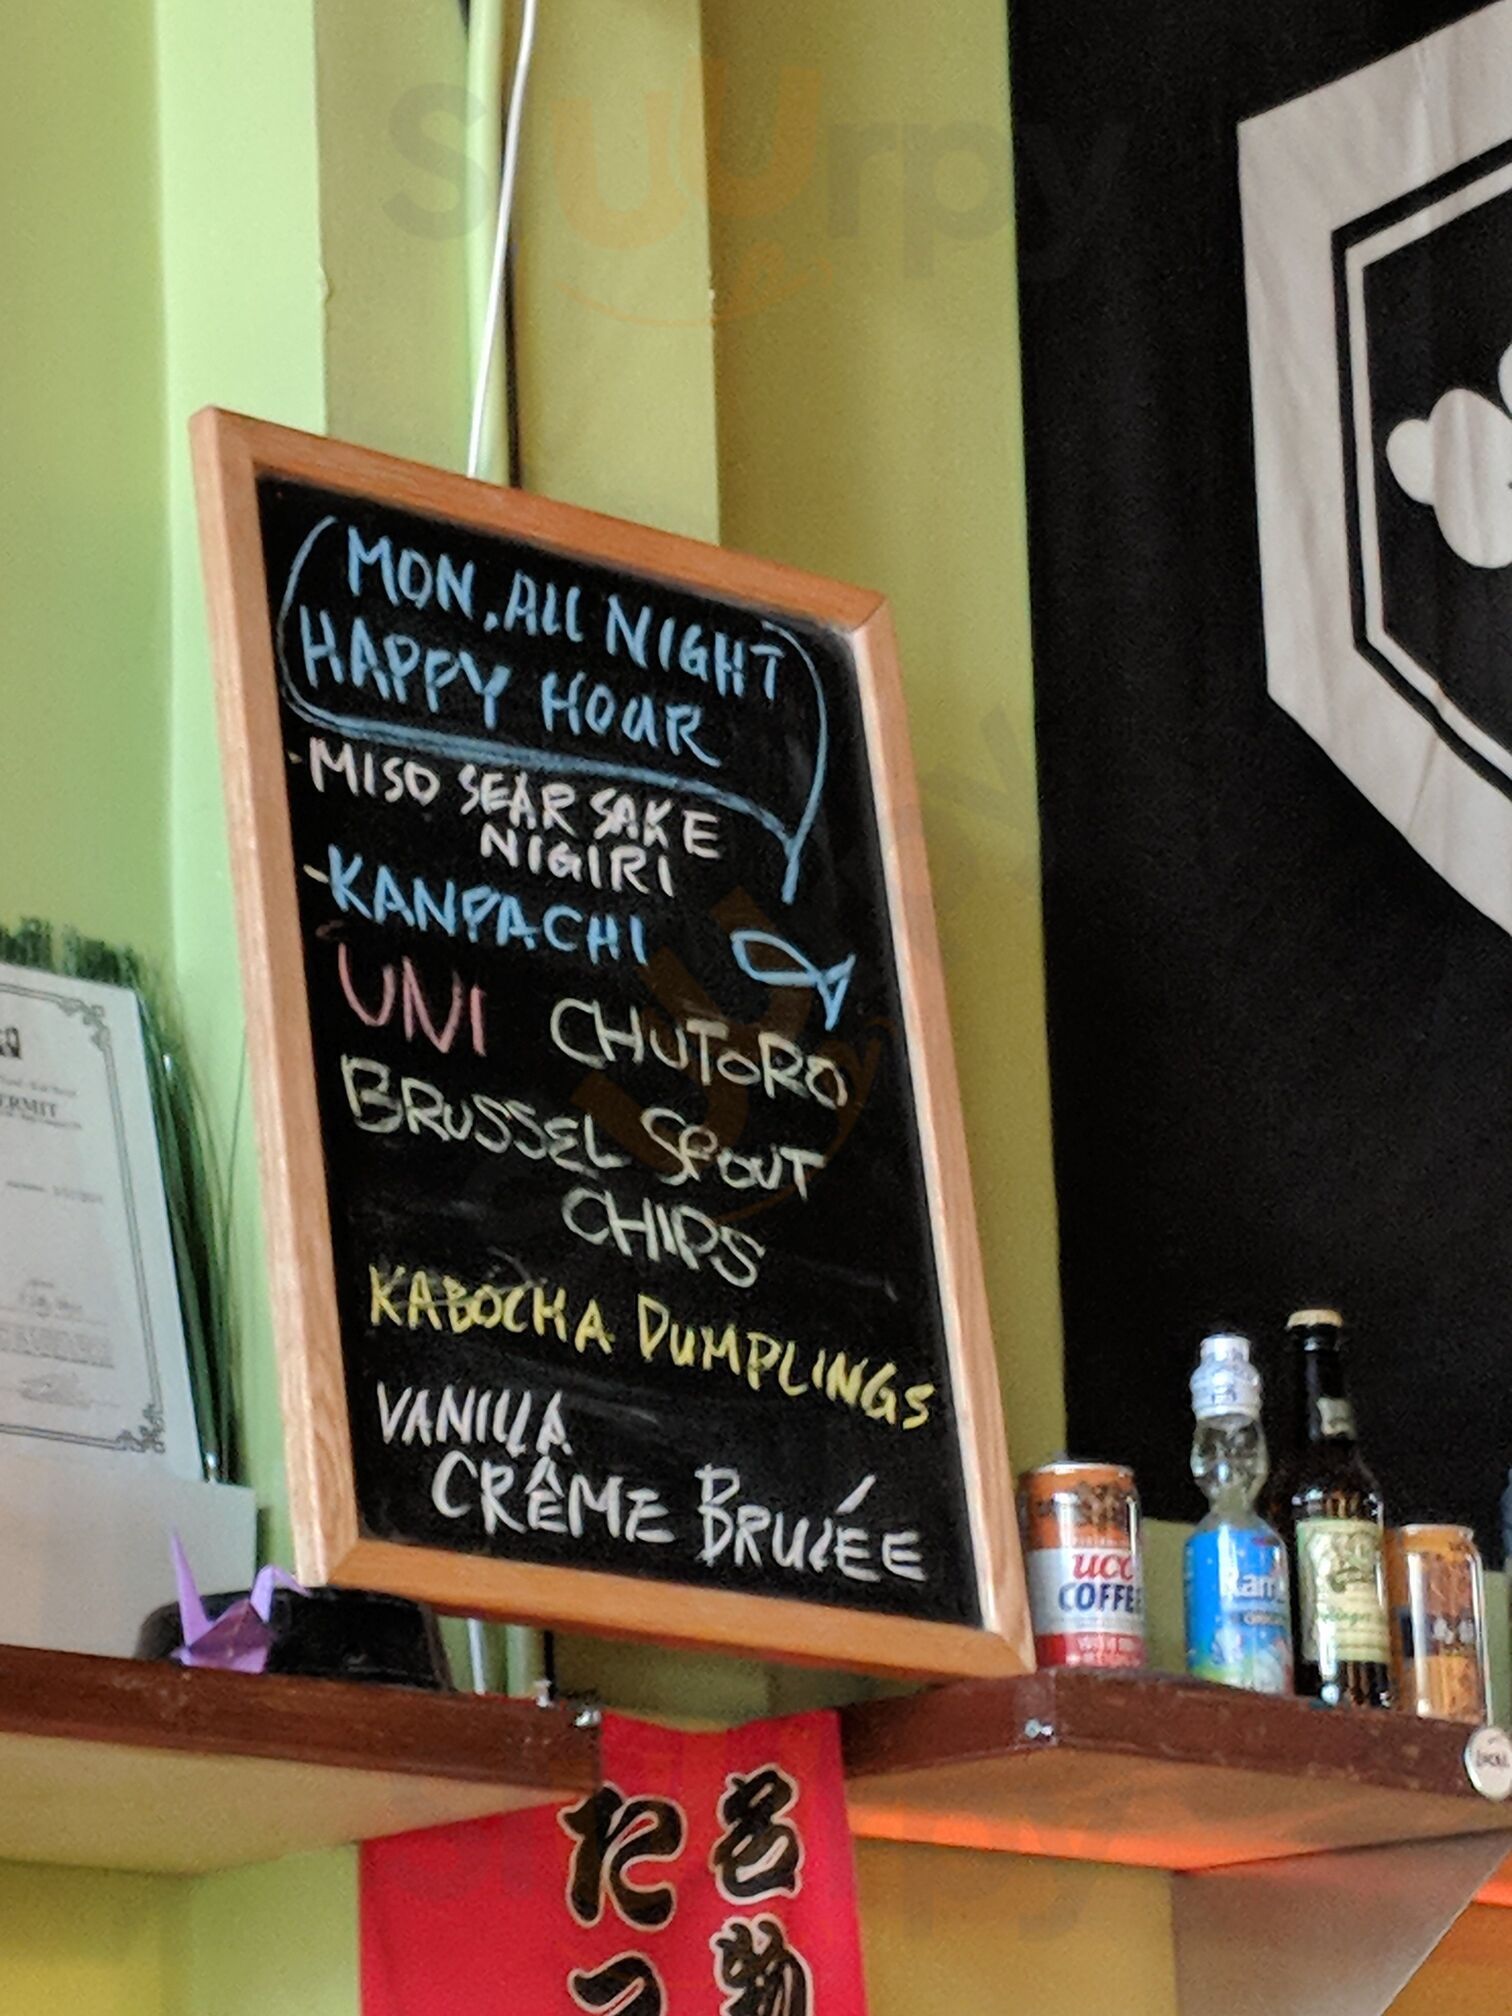 MON. ALL NIGHT
HAPPY HOUR
-MISO SEAR SAKE
NIGIRI
-KANPACHI
UNI CHUTORO
BRUSSEL SPOUT
CHIPS
KABOCHA DUMPLINGS
VANILLA
CRÊME BRULÉE
ERMIT
UCC
COFFEE
Ram
名物
たっ
sluurpy